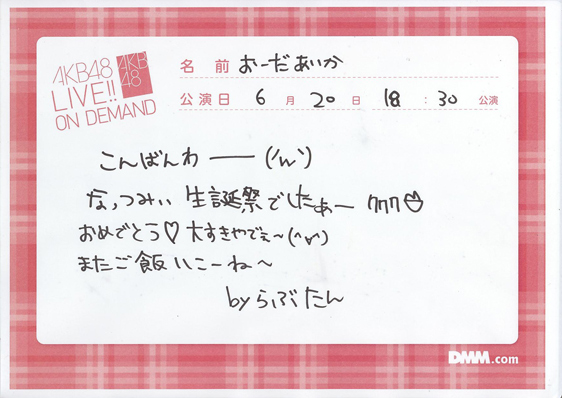 AKB48
LIVE!!
ON DEMAND
AKB
48
名前 おーだあいか
公演日 6月20日 18:30公演
こんばんわー(^ω^)
なっつみぃ 生誕祭でしたぁー ククク
おめでとう♡大すきやでぇ~(^o^)
またご飯いこーね~
byらぶたん
DMM.com